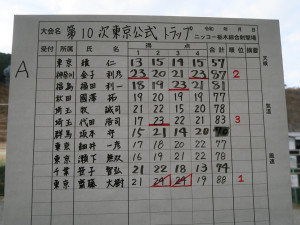 大会名 第10次東京公式トラップ ニッコー栃木綜合射撃場
受付 所属 氏名 得点 合計 順位 摘要
1 2 3 4
A
東京 仁 13 15 14 15 57
神奈川 金子 利彦 23 20 21 23 87 2
福島 福田 利一 18 19 23 21 81
秋田 國澤 拓 19 20 19 19 77
埼玉 牧 誠司 21 22 15 20 78
埼玉 代田 浩司 17 23 22 21 83 3
群馬 坂本 守 15 21 14 20 70
東京 細井 一彦 17 18 20 22 77
東京 瀬下 兼双 16 19 21 22 78
千葉 笹子 智弘 21 22 18 13 74
東京 齋藤 大樹 21 24 24 19 88 1